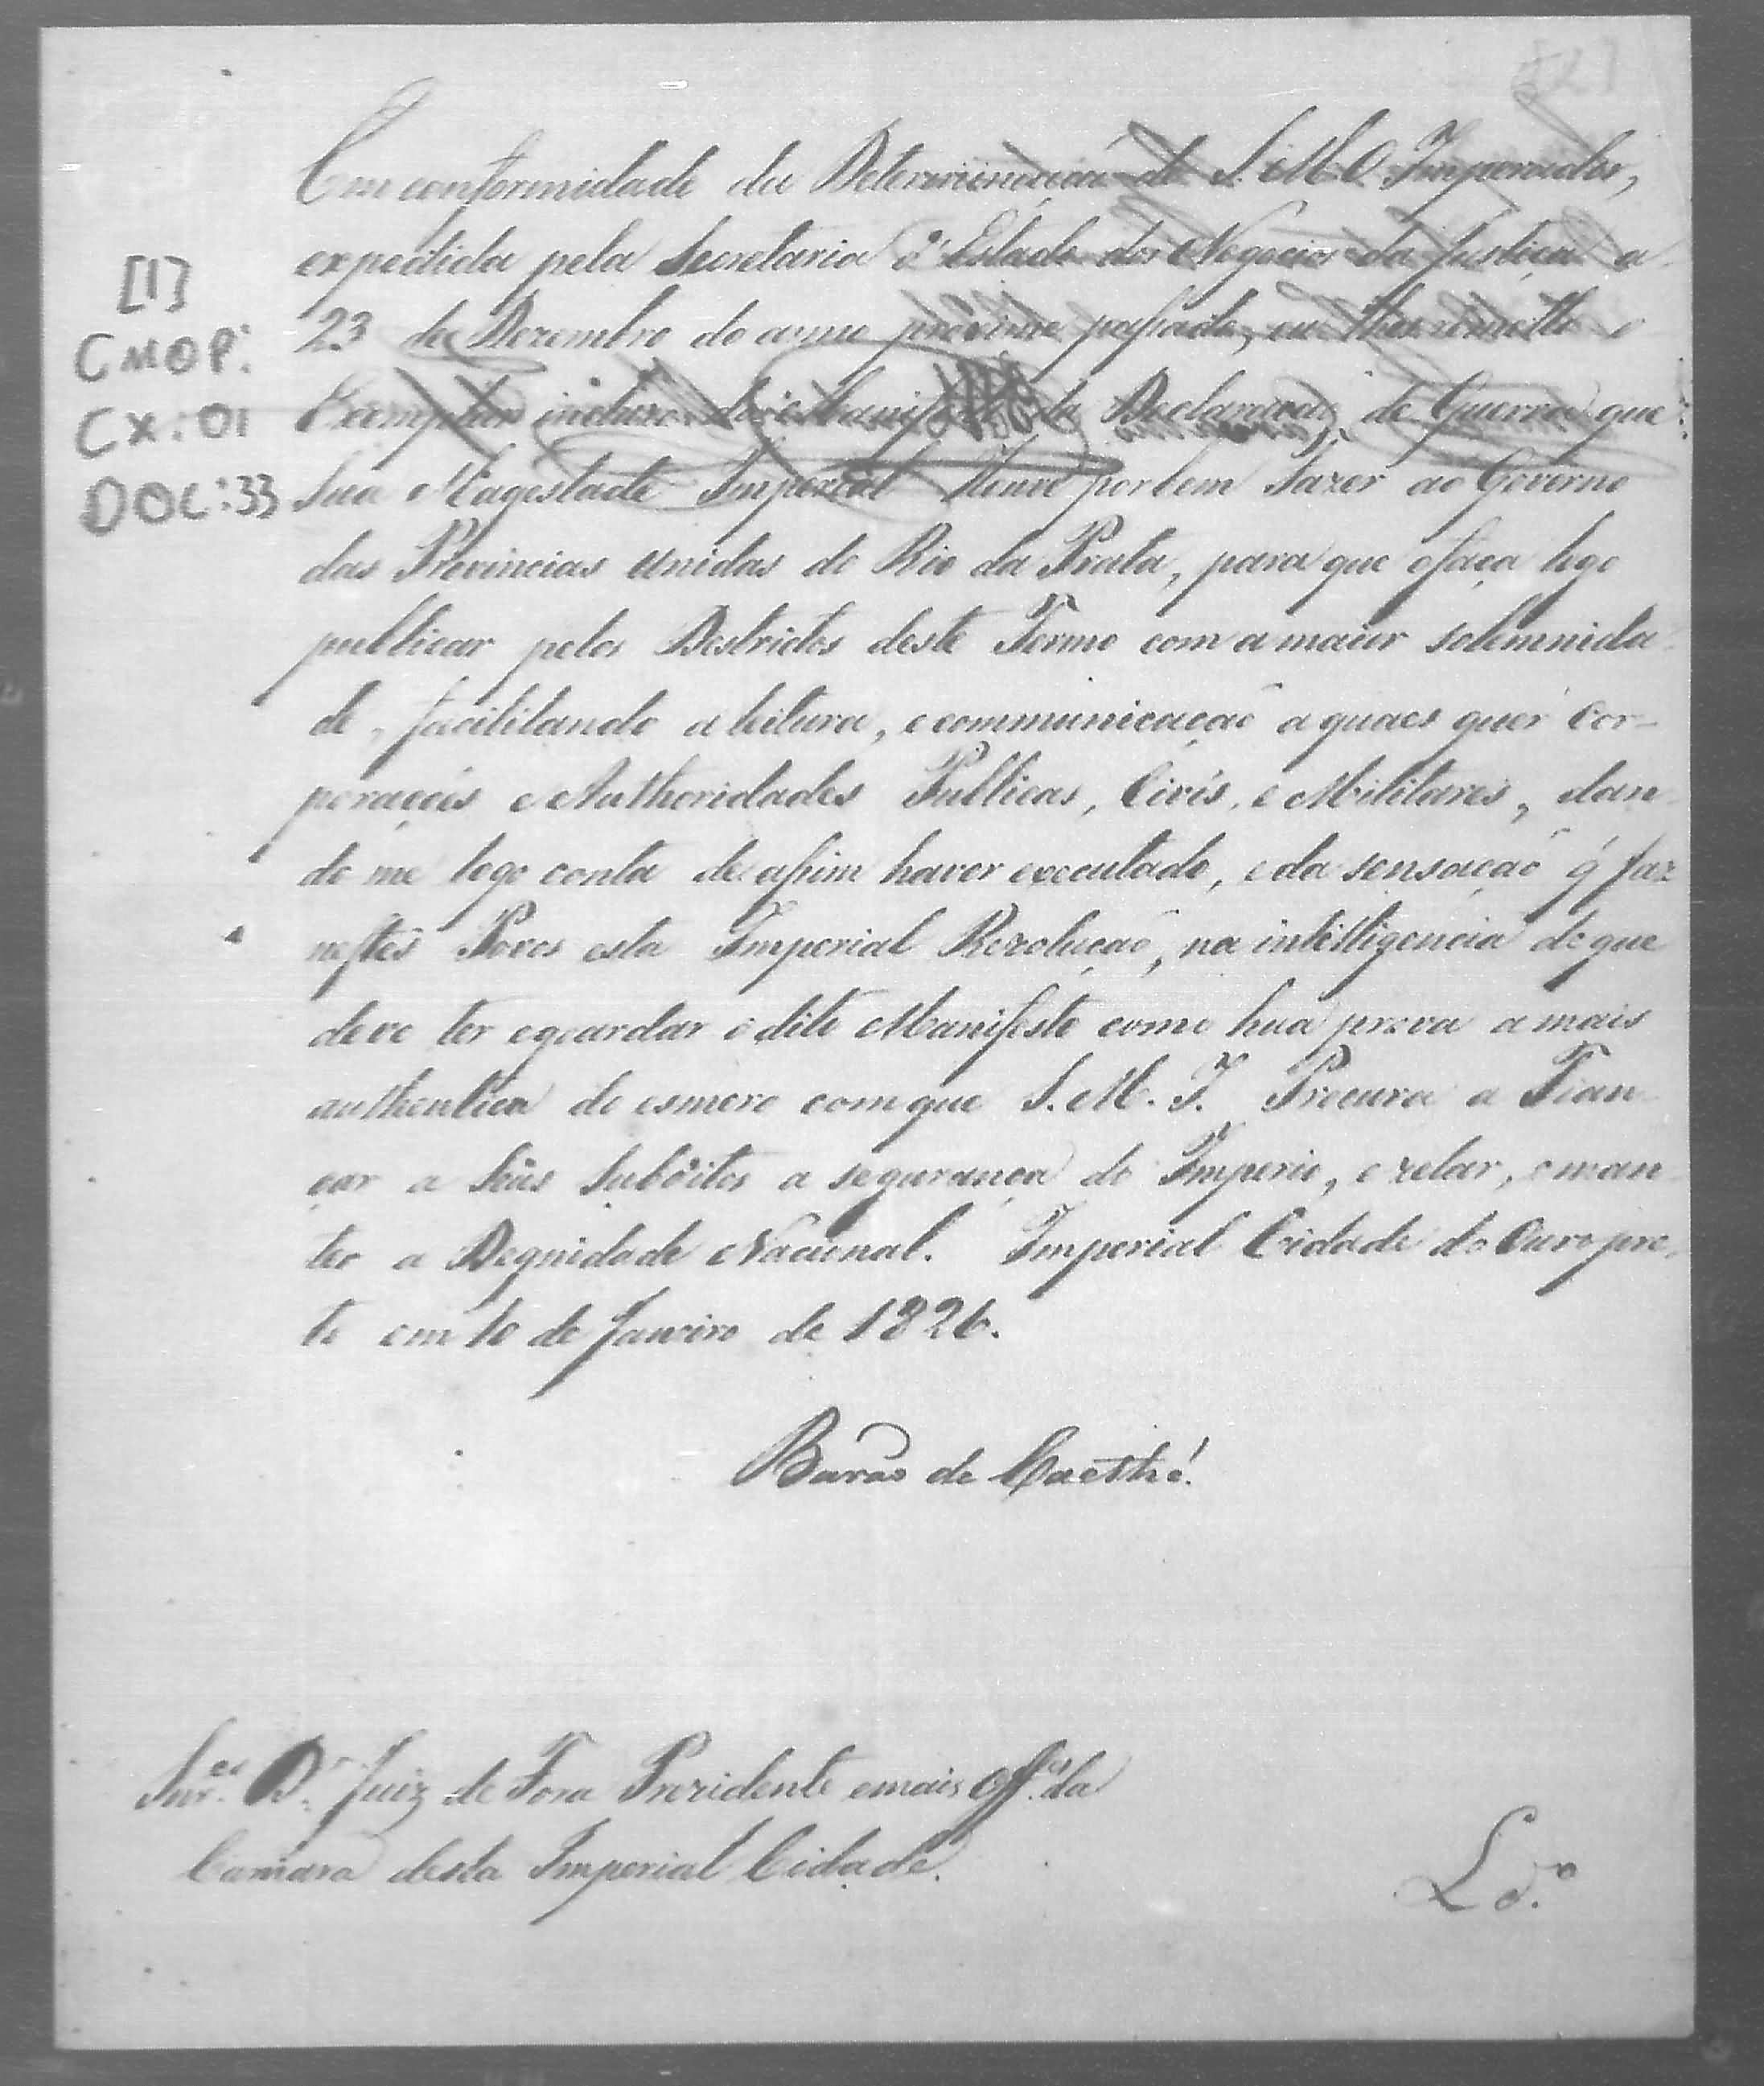 [1]
CMOP.
CX:01
DOC:33
Em conformidade da Determinação de S. M. O Imperador,
expedida pela Secretaria d'Estado dos Negocios da Justiça a
23 de Dezembro do anno proximo passado, eu lhes remetto o
Exemplar incluzo do Manifesto da Declaração de Guerra que
Sua Magestade Imperial Houve por bem Fazer ao Governo
das Provincias Unidas do Rio da Prata, para que o faça logo
publicar pelos Destrictos deste Termo com a maior solemnida
de, facilitando a leitura, e communicação a quaes quer Cor-
poraçoẽs e Authoridades Publicas, Civis, e Militares, dan
do me logo conta de assim haver executado, e da sensação q̃ faz
nestes Povos esta Imperial Rezolução, na intelligencia de que
deve ter e guardar o dito Manifesto como huã prova a mais
authentica do esmero com que S. M. I. Procura a Fian
çar a Seus Subditos a segurança do Imperio, e zelar, e man
ter a Degnidade Nacional. Imperial Cidade do Ouro pre
to em 10 de Janeiro de 1826.
Barão de Caethé.
Snr.es D.r Juiz de Fora Prezidente e mais Off.es da
Camara desta Imperial Cidade.